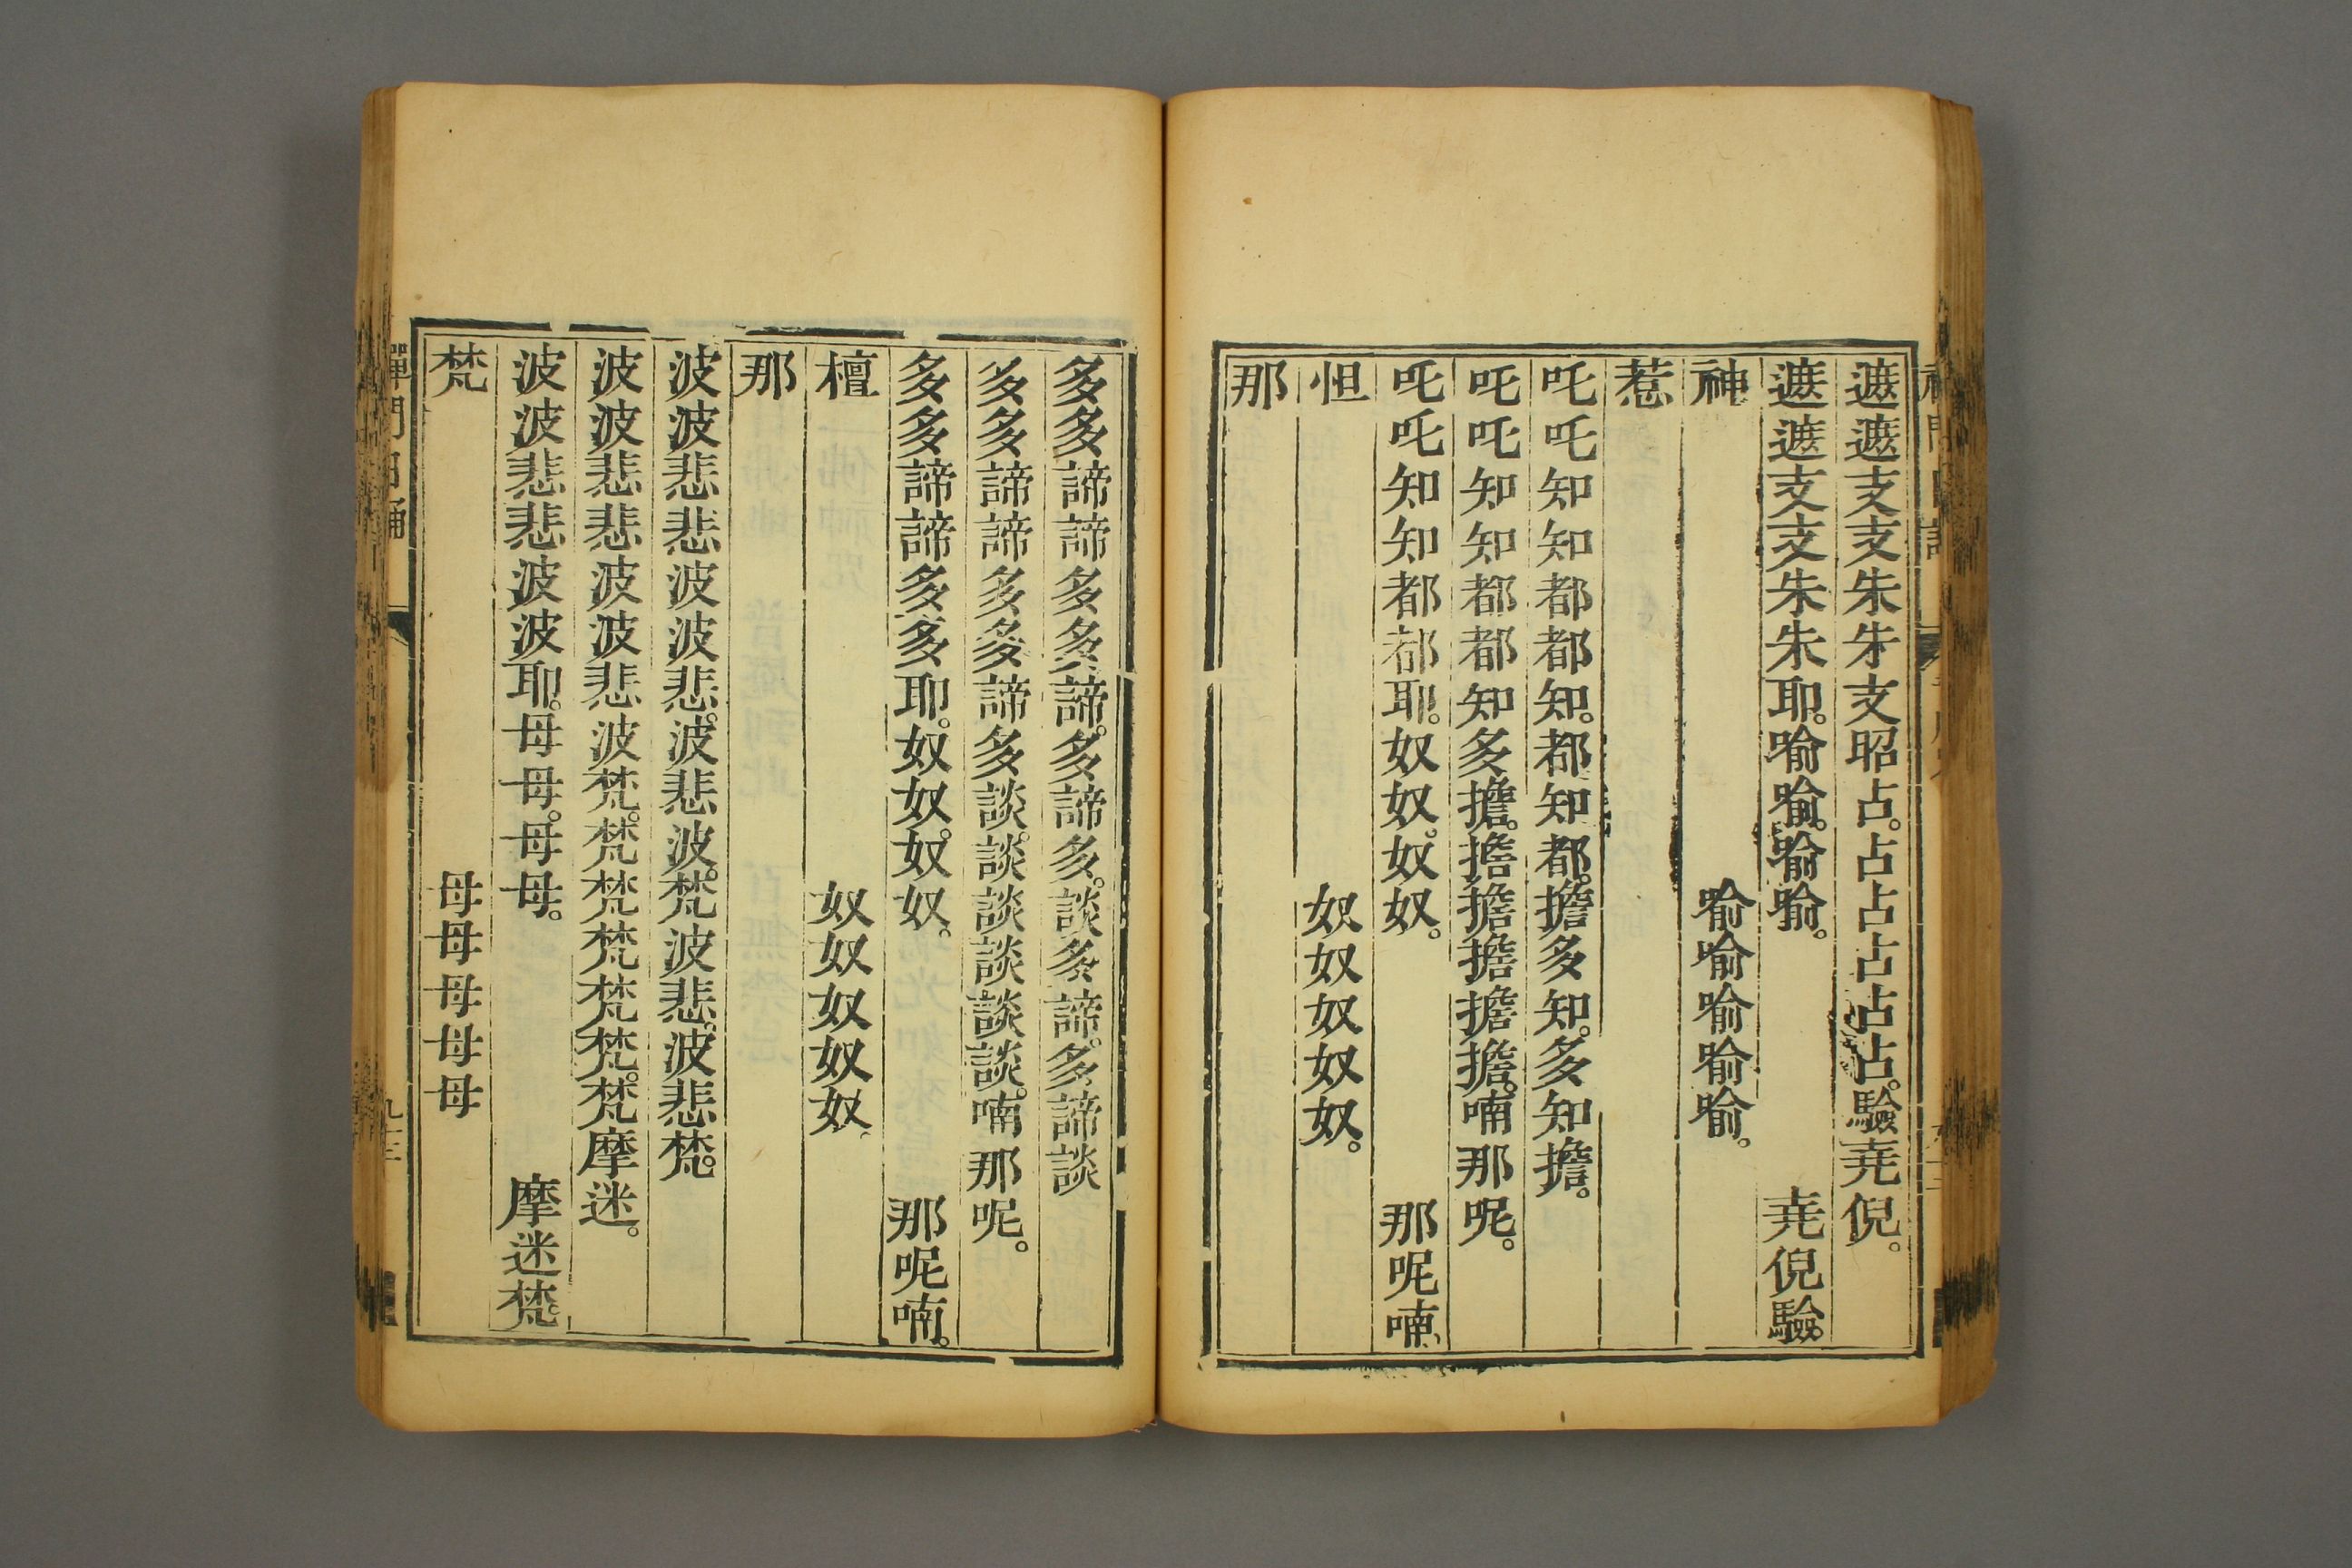 遮遮支支朱朱支昭占。占占占占占。驗堯倪。
遮遮支支朱朱耶。喻喻。喻喻。堯倪驗。
神喻喻喻喻喻。
惹
吒吒知知都都知。都知都。擔多知。多知擔。
吒吒知知都都知多擔。擔擔擔擔擔。喃那呢。
吒吒知知都都耶。奴奴。奴奴。那呢喃、
怛奴奴奴奴奴。
那
多多諦諦多多諦。多諦多。談多諦。多諦談
多多諦諦多多諦多談。談談談談談。喃那呢。
多多諦諦多多耶。奴奴。奴奴。那呢喃。
檀奴奴奴奴奴。
那
波波悲悲波波悲。波悲波。梵波悲。波悲梵。
波波悲悲波波悲波梵。梵梵梵梵梵。梵摩迷。
波波悲悲波波耶。母母。母母。摩迷梵。
梵母母母母母
禪門日誦